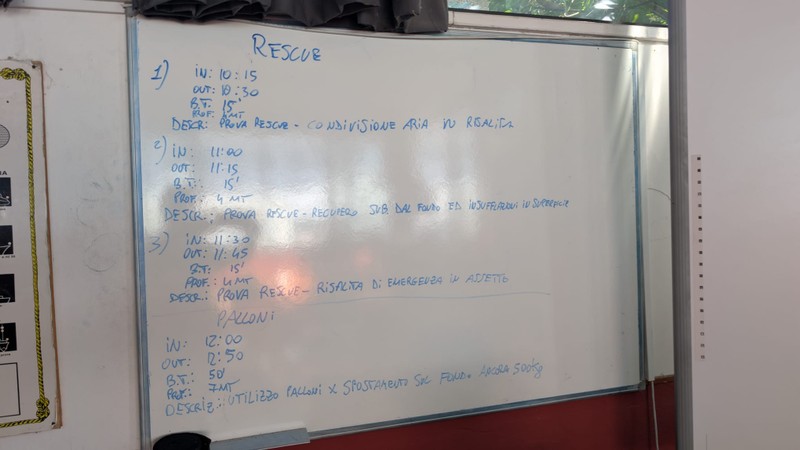 RESCUE
1) IN: 10:15
OUT: 10:30
B.T. 15'
PROF: 4MT
DESCR: PROVA RESCUE - CONDIVISIONE ARIA IN RISALITA
2) IN: 11:00
OUT: 11:15
B.T.: 15'
PROF.: 4 MT
DESCR.: PROVA RESCUE - RECUPERO SUB DAL FONDO ED INSUFFLAZIONI IN SUPERFICIE
3) IN: 11:30
OUT: 11:45
B.T: 15'
PROF.: 4MT
DESCR.: PROVA RESCUE - RISALITA DI EMERGENZA IN ASSETTO
PALLONI
IN: 12:00
OUT: 12:50
B.T.: 50'
PROF: 7MT
DESCRIZ.: UTILIZZO PALLONI X SPOSTAMENTO SUL FONDO ANCORA 500kg